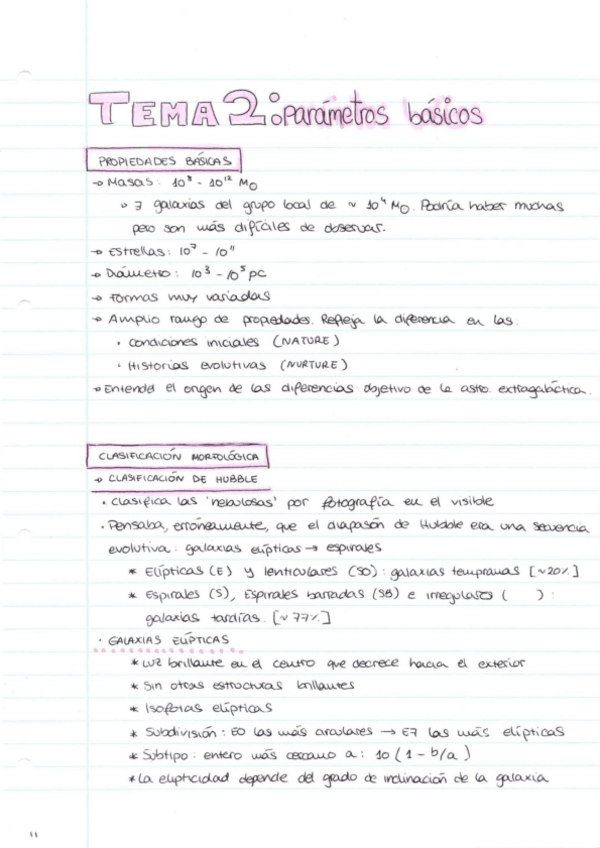 TEMA 2: parámetros básicos
PROPIEDADES BÁSICAS
→ Masas: 10⁸ - 10¹² M⊙
∘ ∃ galaxias del grupo local de ~ 10⁴ M⊙. Podría haber muchas
pero son más difíciles de observar.
→ Estrellas: 10⁷ - 10¹¹
→ Diámetro: 10³ - 10⁵ pc
→ Formas muy variadas
→ Amplio rango de propiedades. Refleja la diferencia en las:
· Condiciones iniciales (NATURE)
· Historias evolutivas (NURTURE)
→ Entender el origen de las diferencias: objetivo de la astro. extragaláctica.
CLASIFICACIÓN MORFOLÓGICA
→ CLASIFICACIÓN DE HUBBLE
· Clasifica las 'nebulosas' por fotografía en el visible
· Pensaba, erróneamente, que el diapasón de Hubble era una secuencia
evolutiva: galaxias elípticas → espirales
* Elípticas (E) y lenticulares (S0): galaxias tempranas [~20%]
* Espirales (S), Espirales barradas (SB) e irregulares ( ):
galaxias tardías. [~77%]
· GALAXIAS ELÍPTICAS
* Luz brillante en el centro que decrece hacia el exterior
* Sin otras estructuras brillantes
* Isofotas elípticas
* Subdivisión: E0 las más circulares → E7 las más elípticas
* Subtipo: entero más cercano a: 10 (1 - b/a)
* La elipticidad depende del grado de inclinación de la galaxia